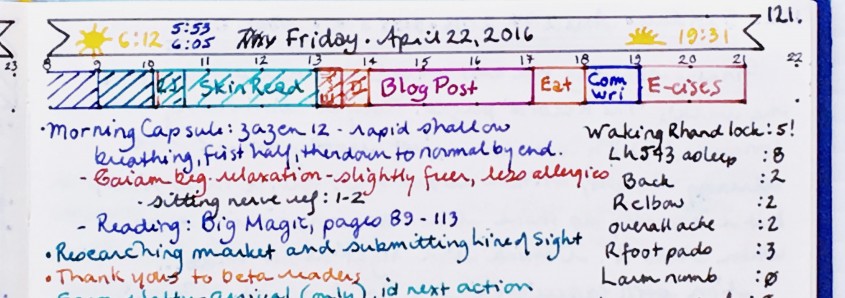 121.
6:12 5:53
6:05
Friday · April 22, 2016
19:31
23 8 9 10 11 12 13 14 15 16 17 18 19 20 21 22
SkinRead Blog Post Eat Com
wri E-cises
· Morning Capsule: zazen 12 - rapid shallow
breathing, first half, then down to normal by end.
- Gaiam beg. relaxation - slightly freer, less allergies
- sitting nerve ref: 1-2
- Reading: Big Magic, pages 89 - 113
· Researching market and submitting Line of Sight
· Thank yous to beta readers
(only), id next action
Waking Rhand lock: 5!
Lh543 asleep :8
Back :2
Relbow :2
overall ache :2
Rfoot pads :3
Larm numb :ø